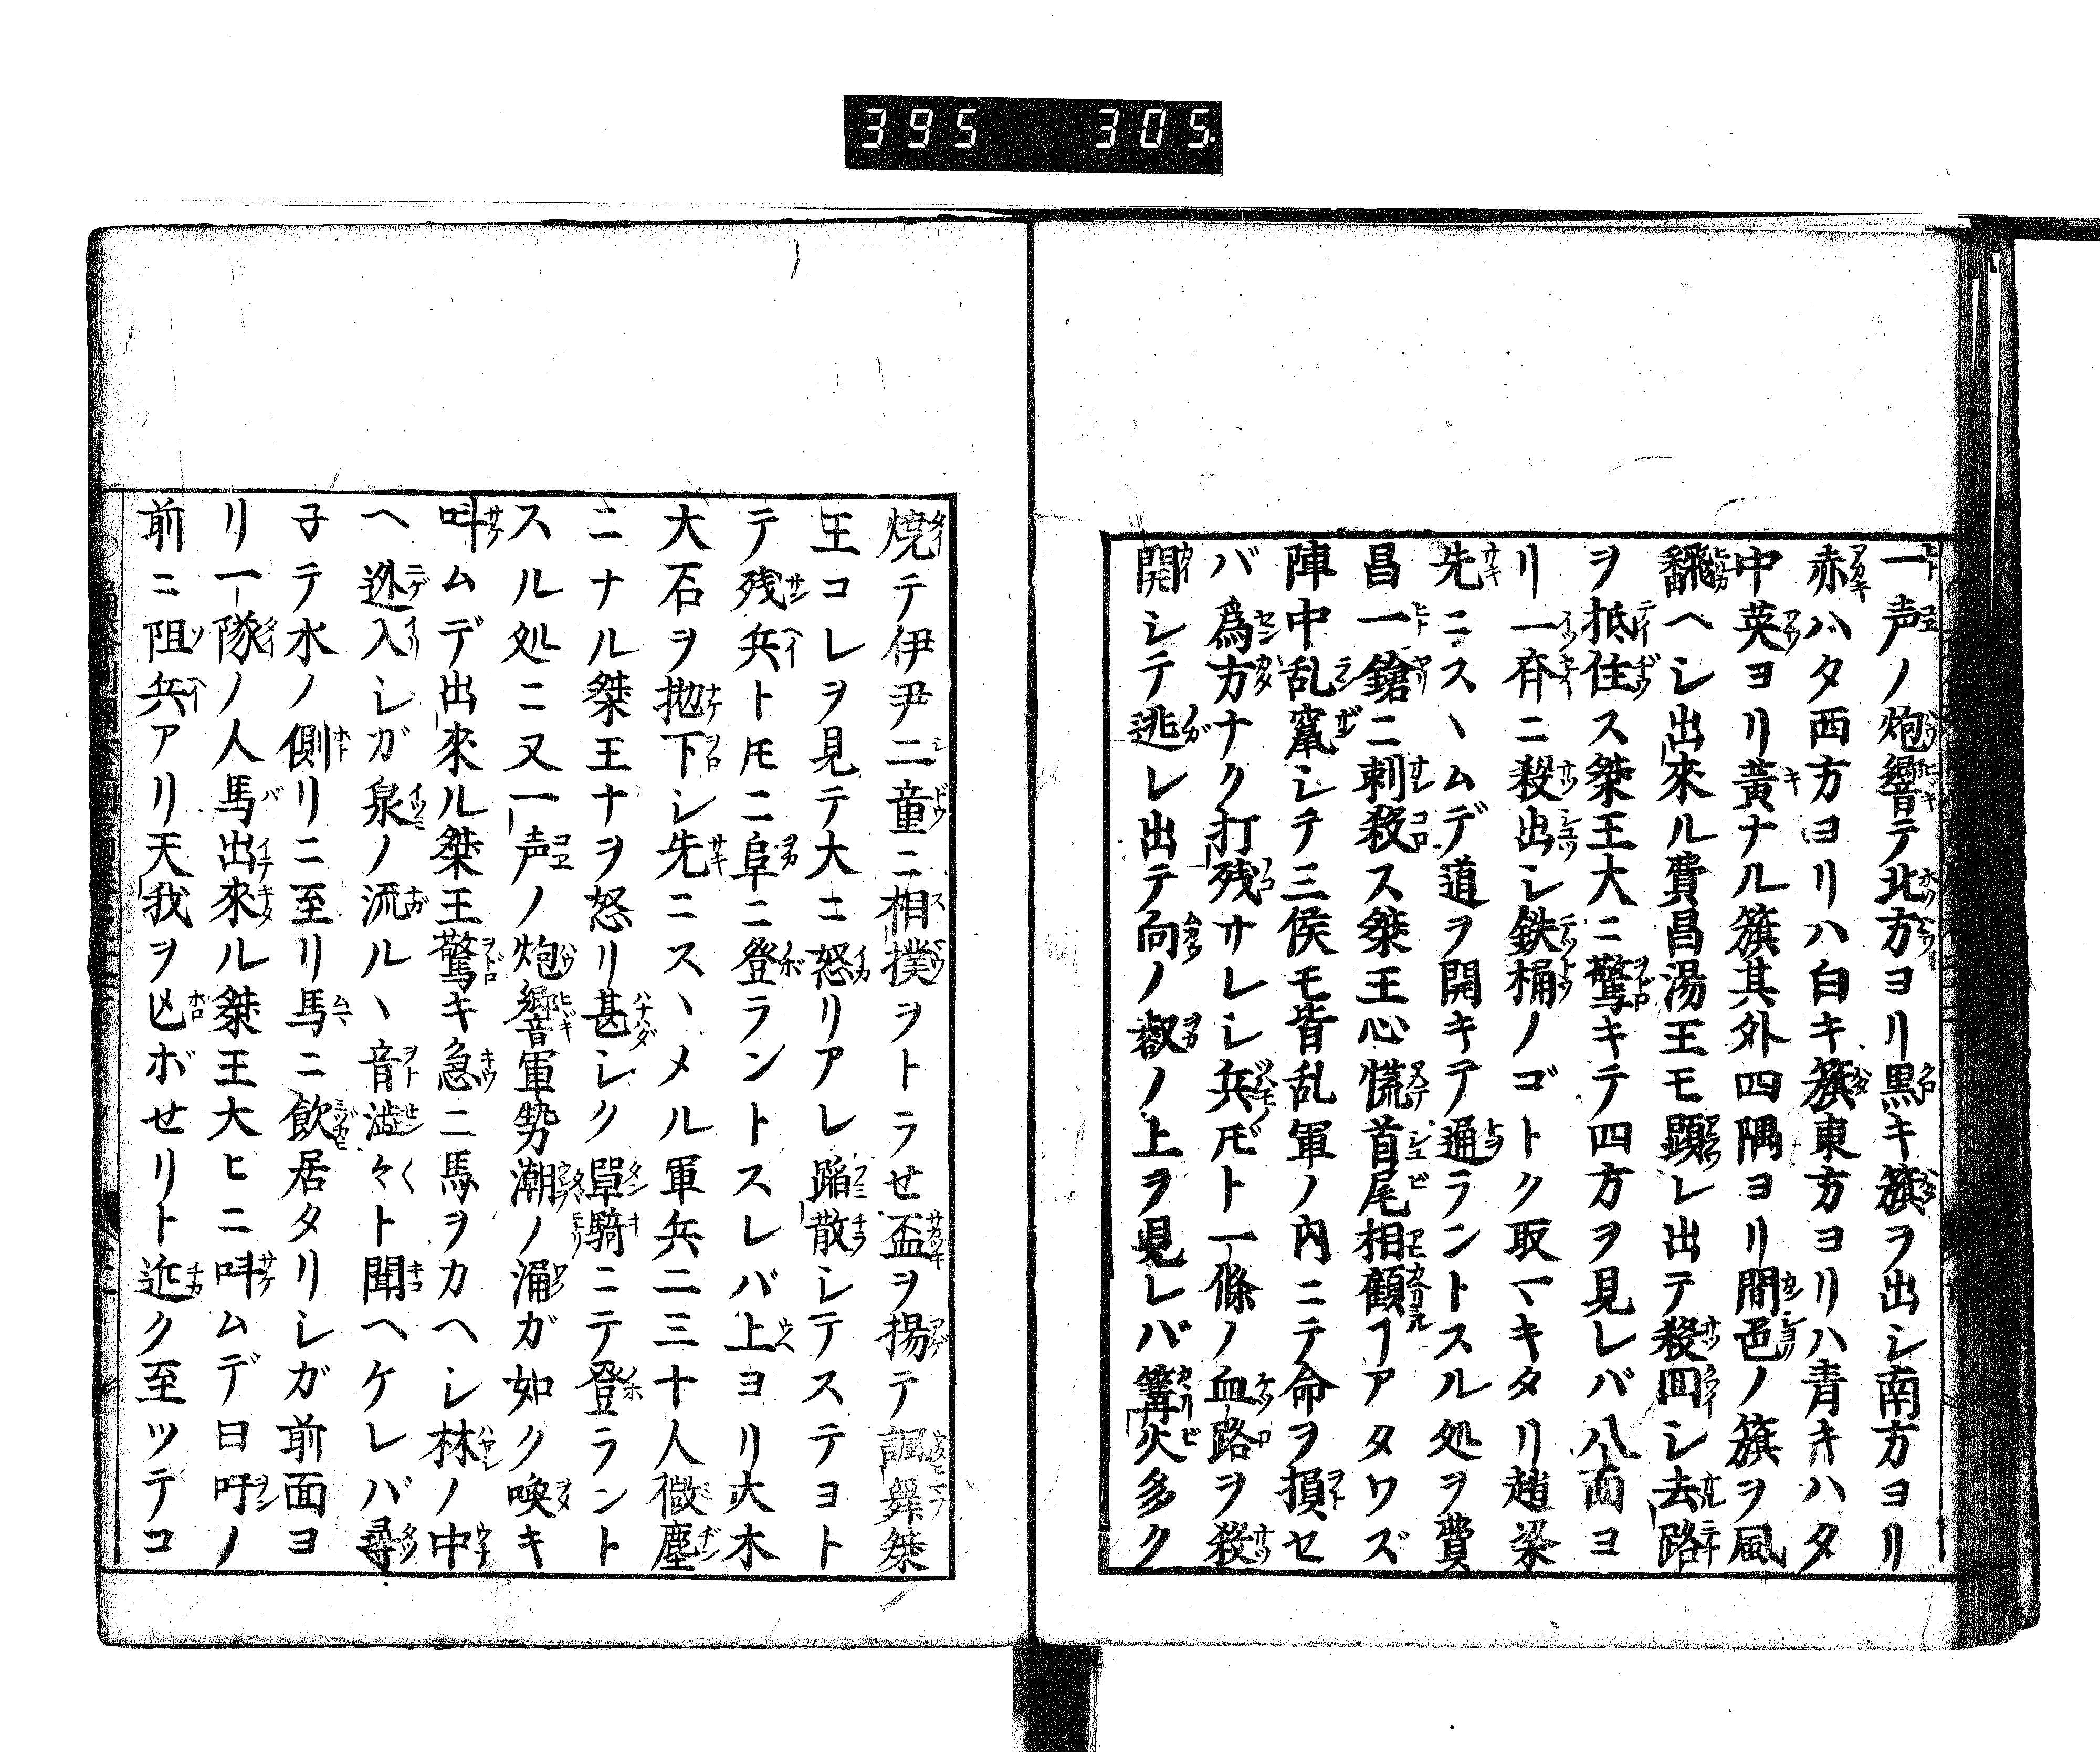 395 305
一声ノ炮響テ北方ヨリ黒キ籏ヲ出シ南方ヨリ
赤ハタ西方ヨリハ白キ籏東方ヨリハ青キハタ
中英ヨリ黄ナル籏其外四隅ヨリ間色ノ籏ヲ風
飜ヘシ出来ル費昌湯王モ顕レ出テ殺回シ去路
ヲ抵住ス桀王大ニ驚キテ四方ヲ見レバ八面ヨ
リ一斉ニ殺出シ鉄桶ノゴトク取マキタリ趙梁
先ニスヽムデ道ヲ開キテ通ラントスル処ヲ費
昌一鎗ニ刺殺ス桀王心慌首尾相顧ヿアタワズ
陣中乱竄シテ三侯モ皆乱軍ノ内ニテ命ヲ損セ
バ為方ナク打残サレシ兵𪜈ト一條ノ血路ヲ殺
開シテ逃レ出テ向ノ嶽ノ上ヲ見レバ篝火多ク
焼テ伊尹二童ニ相撲ヲトラせ盃ヲ揚テ諷舞桀
王コレヲ見テ大ニ怒リアレ蹈散シテステヨト
テ残兵ト𪜈ニ阜ニ登ラントスレバ上ヨリ大木
大石ヲ抛下シ先ニスヽメル軍兵二三十人微塵
ニナル桀王ナヲ怒リ甚シク單騎ニテ登ラント
スル処ニ又一声ノ炮響軍勢潮ノ涌ガ如ク喚キ
叫ムデ出來ル桀王驚キ急ニ馬ヲカヘシ林ノ中
ヘ迯入シガ泉ノ流ルヽ音澁々ト聞ヘケレバ尋
子テ水ノ側リニ至リ馬ニ飲居タリシガ前面ヨ
リ一隊ノ人馬出來ル桀王大ヒニ叫ムデ曰吁ノ
前ニ阻兵アリ天我ヲ亡ボせリト近ク至ツテコ